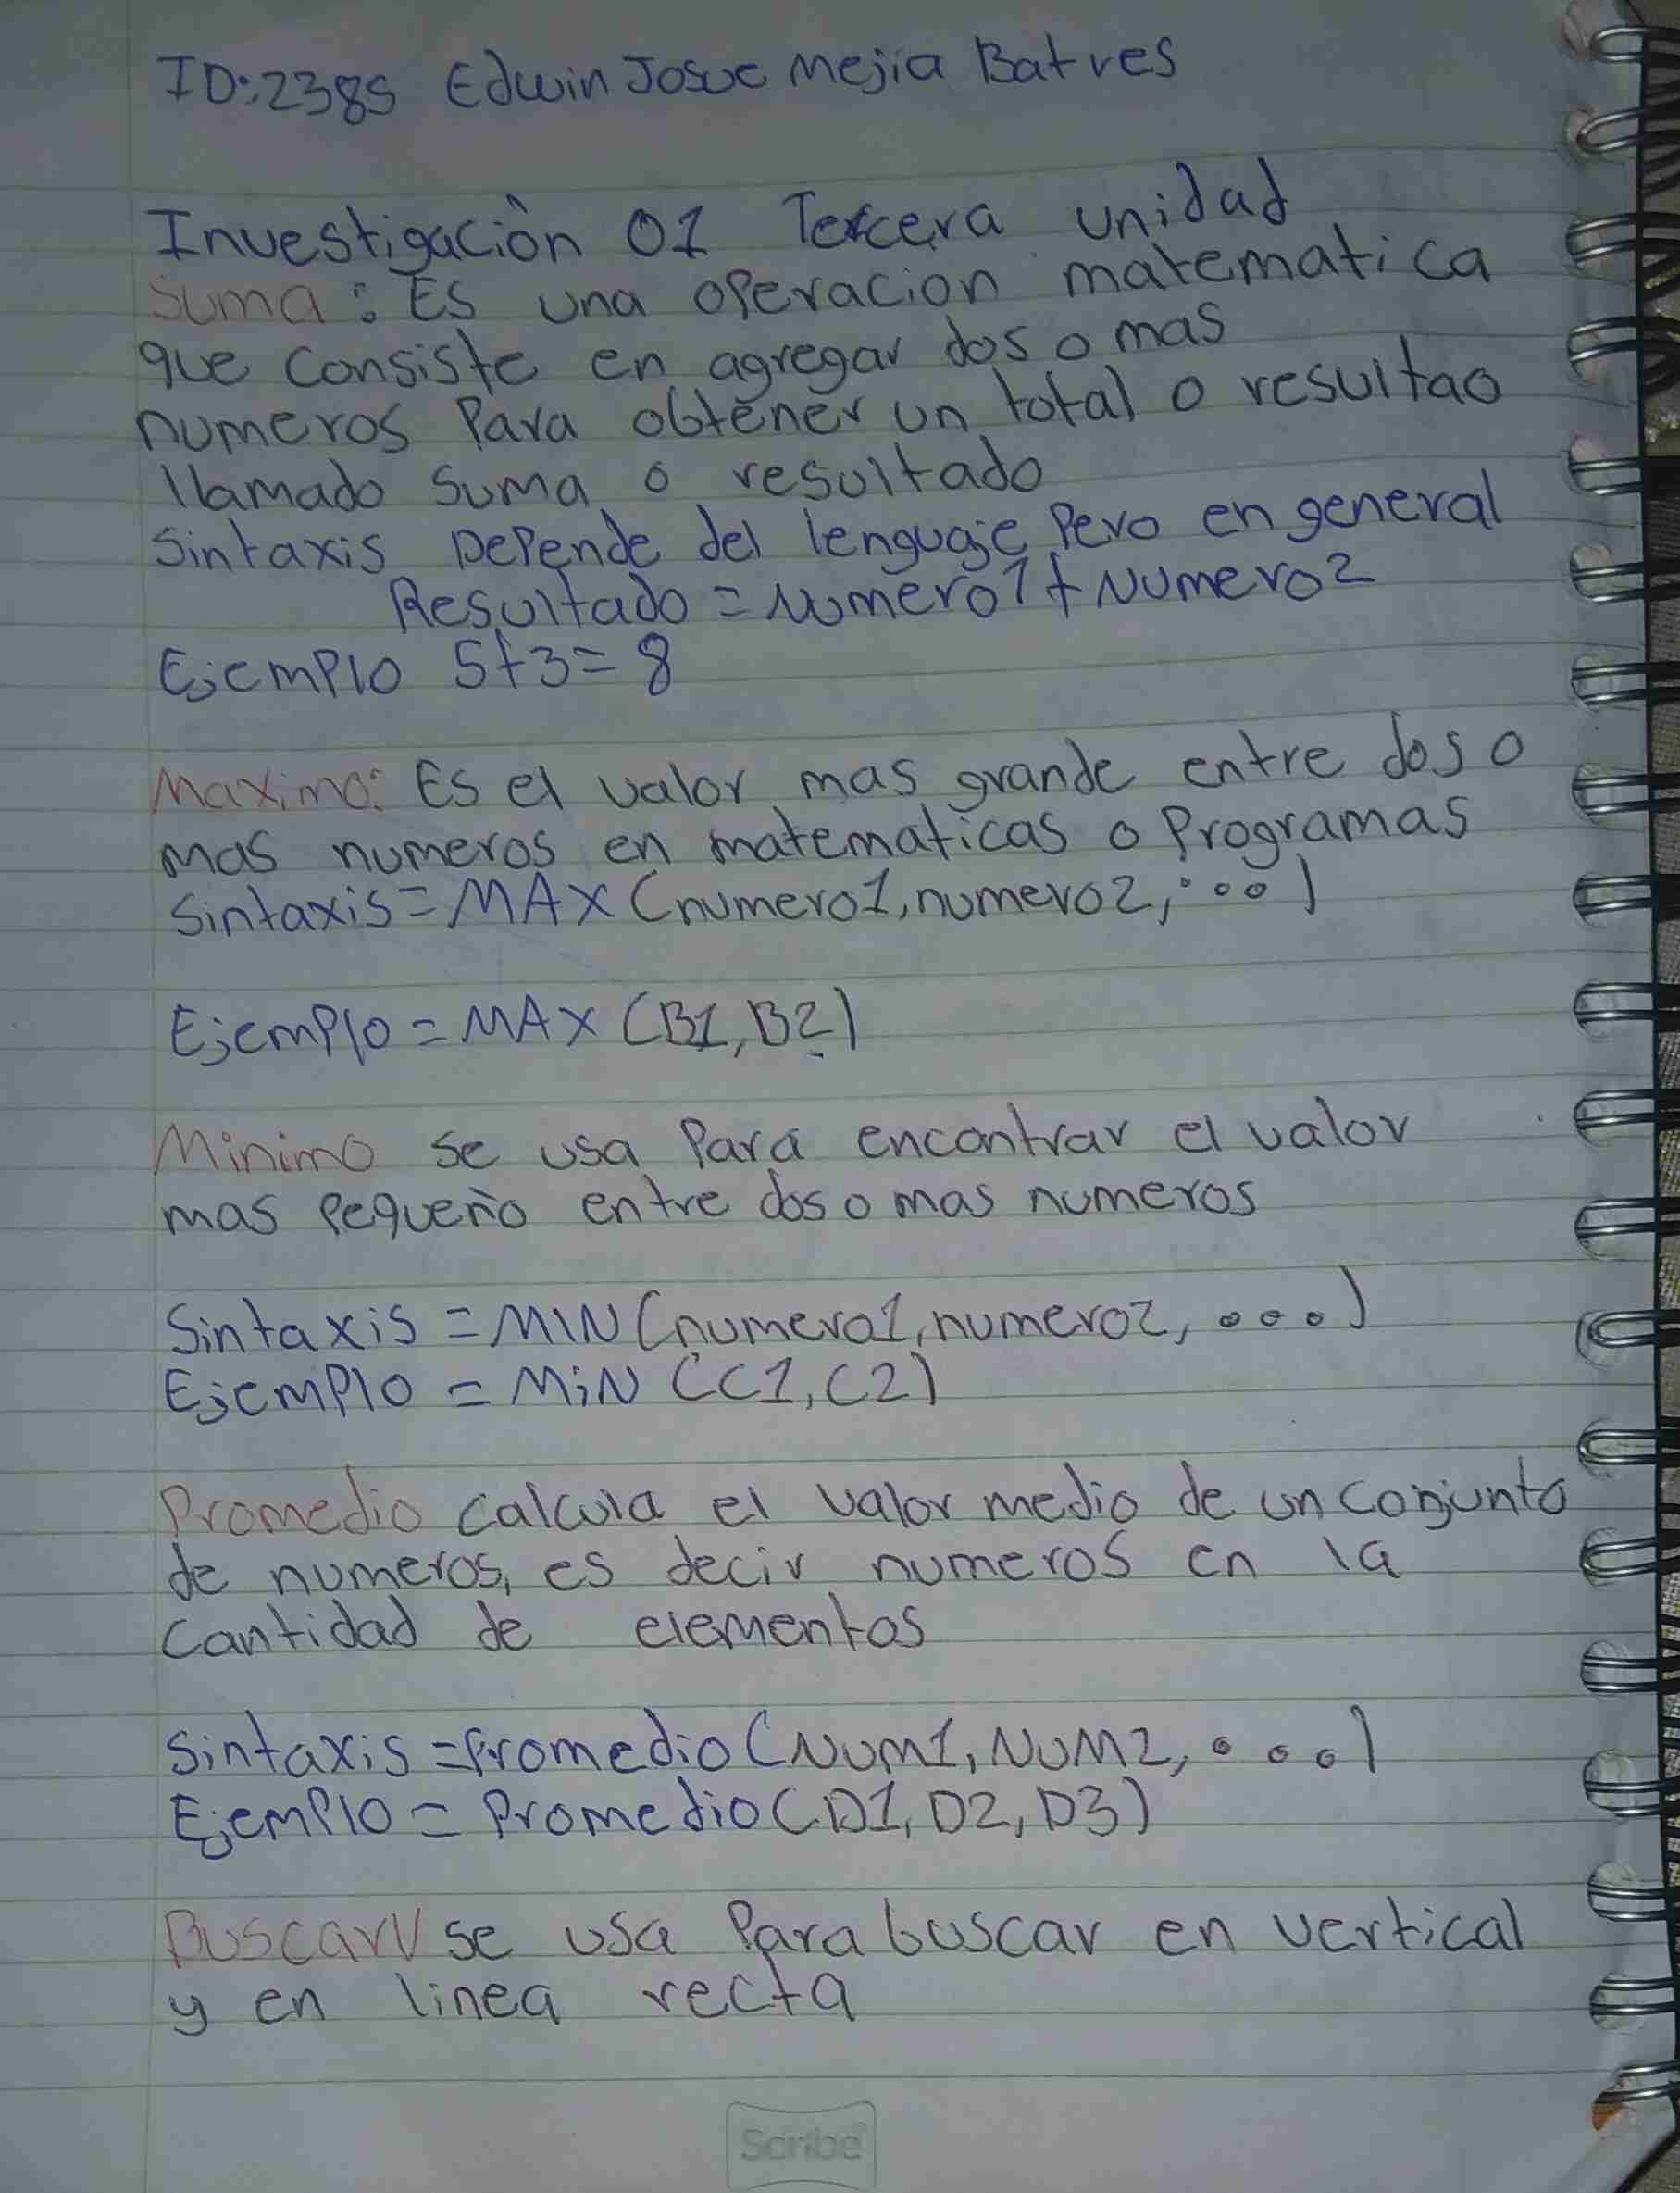 ID:2385 Edwin Josue Mejia Batres
Investigaciòn 01 Tercera unidad
Suma: Es una operacion matematica
que consiste en agregar dos o mas
numeros Para obtener un total o resultao
llamado suma o resultado
Sintaxis Depende del lenguaje Pero en general
Resultado = Numero1 + Numero2
Ejemplo 5+3=8
Maximo: Es el valor mas grande entre dos o
mas numeros en matematicas o Programas
Sintaxis = MAX (numero1, numero2, ...)
Ejemplo = MAX (B1, B2)
Minimo se usa Para encontrar el valor
mas Pequeño entre dos o mas numeros
Sintaxis = MIN (numero1, numero2, ...)
Ejemplo = MiN (C1, C2)
Promedio calcula el valor medio de un conjunto
de numeros, es decir numeros en la
cantidad de elementos
Sintaxis = Promedio (Num1, NUM2, ...)
Ejemplo = Promedio (D1, D2, D3)
BuscarV se usa Para buscar en vertical
y en linea recta
Scribe